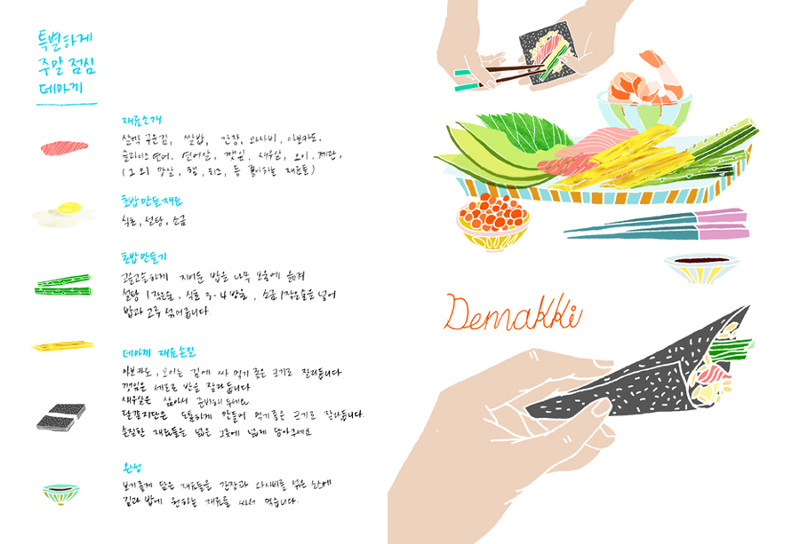 특별하게
주말 점심
데마끼
재료소개
살짝 구운김, 쌀밥, 간장, 와사비, 아보카도,
슬라이스 연어, 연어알, 깻잎, 새우살, 오이, 계란,
(그 외 맛살, 햄, 치즈, 등 좋아하는 재료들)
초밥 만드는 재료
식초, 설탕, 소금
초밥 만들기
고슬고슬하게 지어둔 밥을 나무 보울에 옮겨
설탕 1작은술, 식초 3-4 방울, 소금 1작은술을 넣어
밥과 고루 섞어줍니다.
데마끼 재료손질
아보카도, 오이는 김에 싸 먹기 좋은 크기로 잘라둡니다
깻잎은 세로로 반을 잘라둡니다
새우살은 삶아서 준비해두세요
달걀지단은 도톰하게 만들어 먹기 좋은 크기로 잘라둡니다.
손질한 재료들을 넓은 그릇에 넓게 담아주세요
완성
보기좋게 담은 재료들을 간장과 와사비를 섞은 소스에
김과 밥에 원하는 재료를 싸서 먹습니다.
Demakki